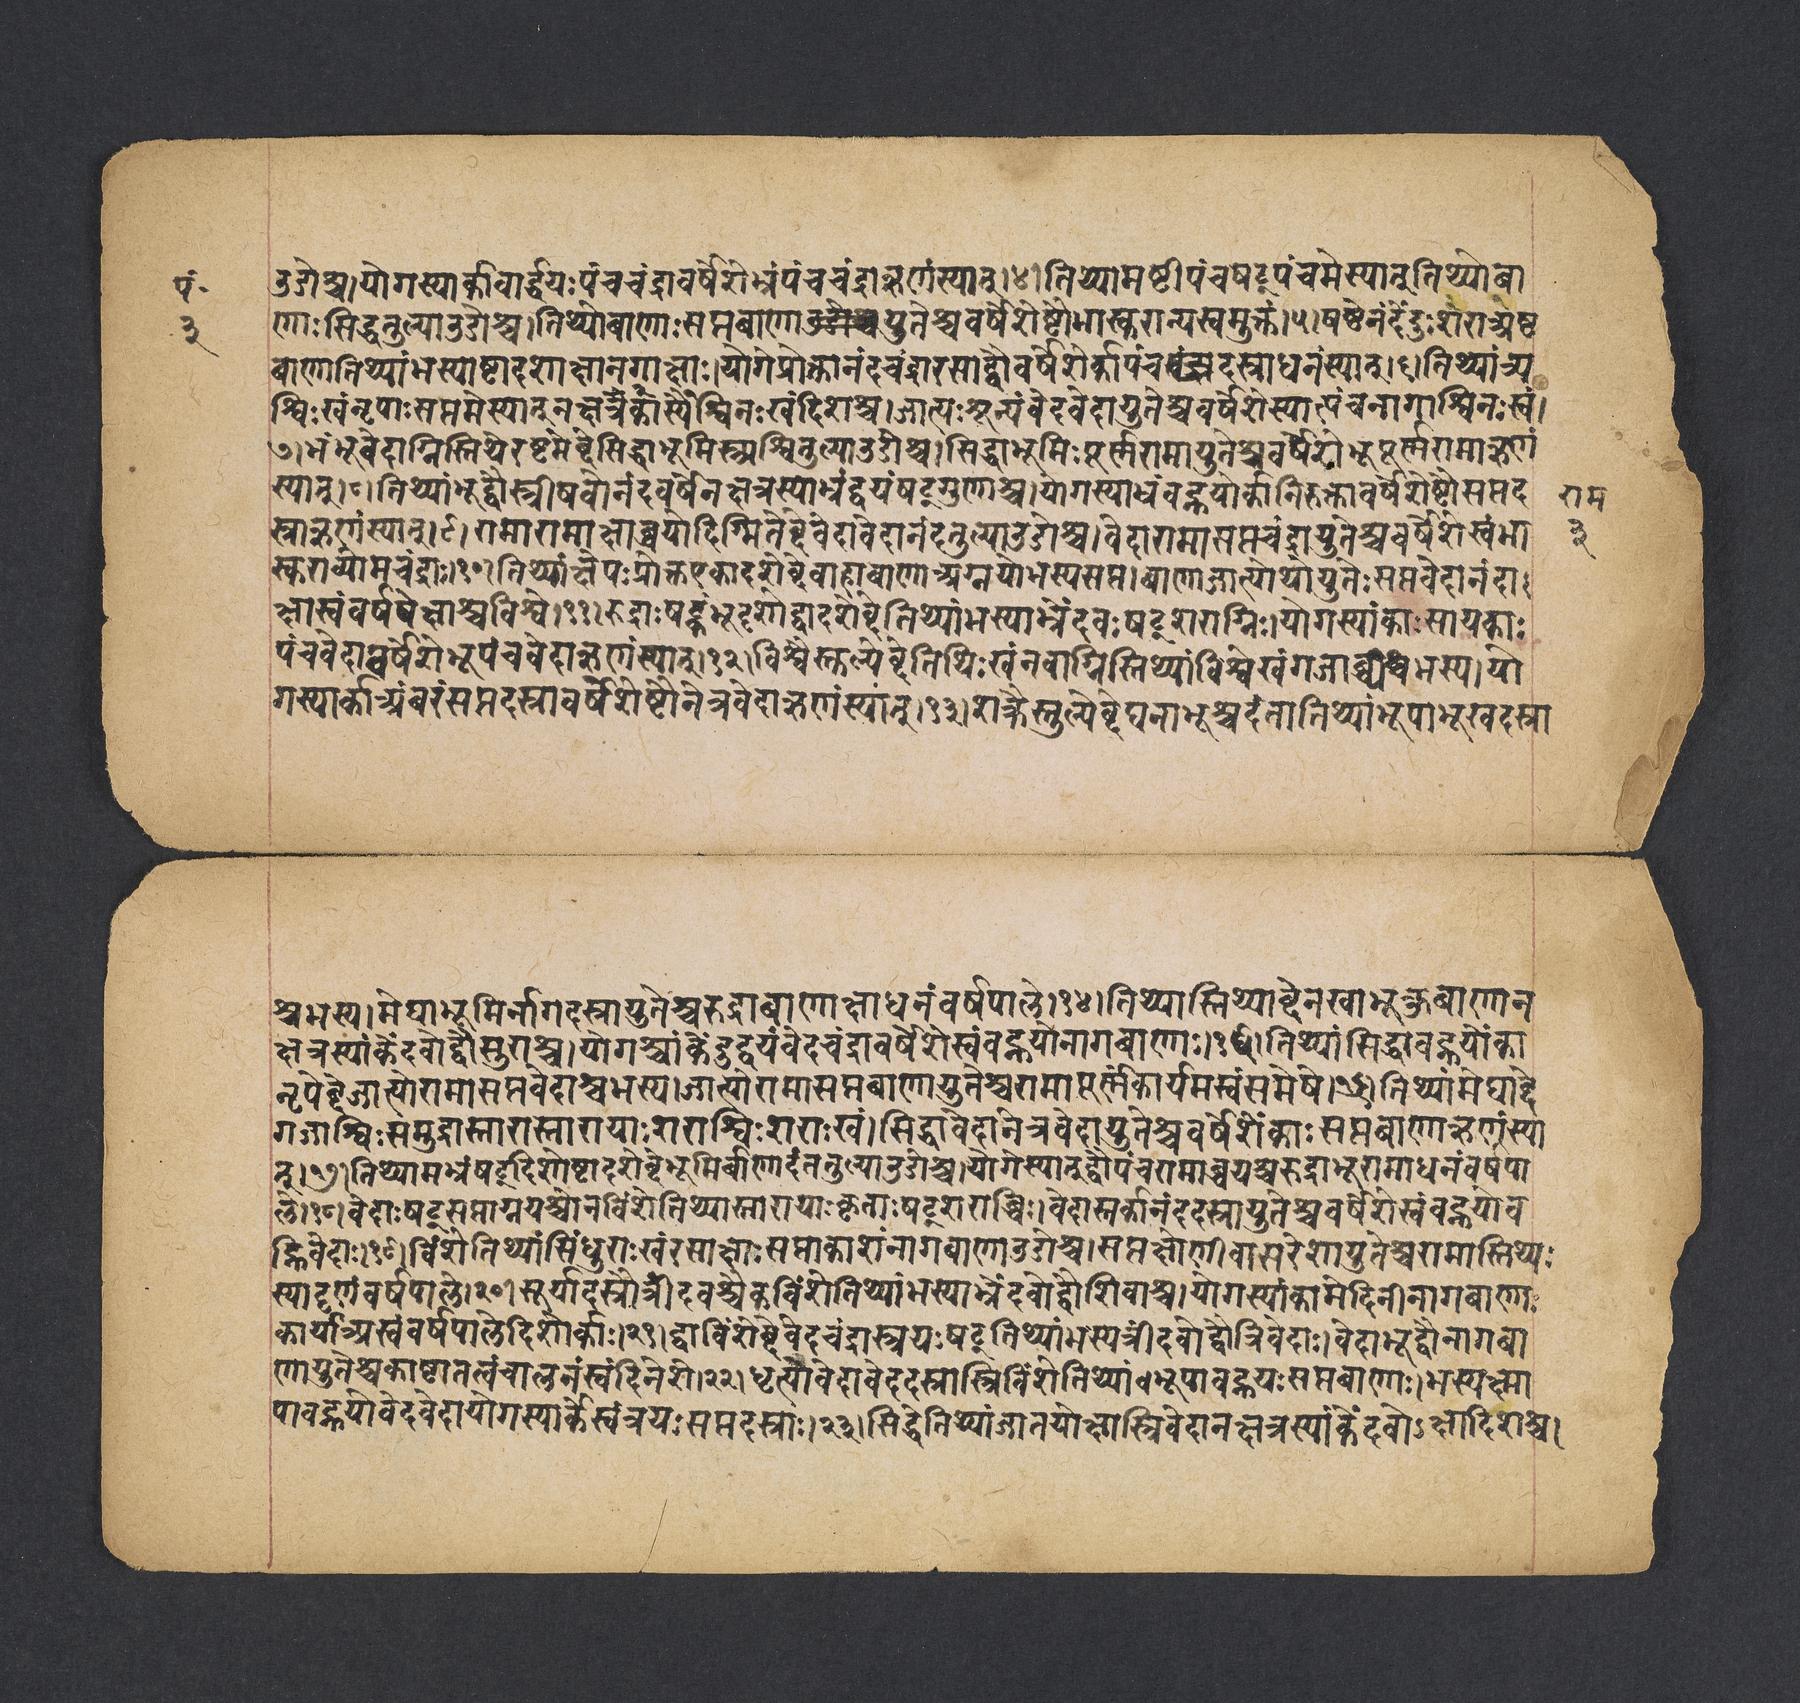 पं॰
३
उडोश्च।योगस्यार्कावार्द्धयःपंचचंद्रावर्षेशेभ्रंपंचचंद्राऋणंस्यात्।४।तिथ्यामष्टीपंचषट्पंचमेस्यात्तिथ्योबा
णाःसिद्धतुल्याउडोश्च।तिथ्योबाणाःसप्तबाणा युतेश्चवर्षेशेष्टौभास्करान्यस्वमुक्तं।५।षष्ठेनंदेंदुःशराअष्ट
बाणातिथ्यांभस्याष्टादशाक्षानगाक्षाः।योगेप्रोक्तानंदचंद्रारसाद्वौवर्षेशेर्कापंच दस्राधनंस्यात्।६।तिथ्यांत्र्य
श्विःखंनृपाःसप्तमेस्यान्नक्षत्रैर्कास्यैश्विनःखंदिशश्च।जात्यःशून्यंवेदवेदायुतेश्चवर्षेशेस्यात्पंचनागाश्विनःस्वं।
७।भंभूवेदाग्निस्तिथेरष्टमेब्देसिद्धाभूमिस्त्र्यश्वितुल्याउडोश्च।सिद्धाभूमिःपूर्त्मरामायुतेश्चवर्षेशेभूपूर्त्मरामाऋणं
स्यात्।८।तिथ्यांभूद्वौस्त्रीषवोनंदवर्षेनक्षत्रस्याभ्रंद्वयंषट्गुणाश्च।योगस्याभ्रंवह्नयोर्कानिरुक्तावर्षेशेष्टौसप्तद
स्राऋणंस्यात्।९।रामारामाक्षोब्धयोदिग्मितेब्देवेदावेदानंदतुल्याउडोश्च।वेदारामासप्तचंद्रायुतेश्चवर्षेशेखंभा
स्कराव्योमचंद्राः।१०।तिथ्यांक्षेपःप्रोक्तएकादशेब्देबाहाबाणाअग्नयोभस्यसप्त।बाणाजात्योथोयुतेःसप्तवेदानंदा:
क्षास्वंवर्षपेक्ष्माश्चविश्वे।११।रुद्राःषड्कंभूदृशोद्वादशेब्देतिथ्यांभस्याभ्रेंदवःषट्शराग्निः।योगस्यांकाःसायकाः
पंचवेदाब्वर्षेशेभूपंचवेदाऋणंस्यात्।१२।विश्वैस्तुल्येब्देतिथिःखंनवाग्निस्तिथ्यांविश्वेखंगजाब्धीश्चभस्य।यो
गस्यार्काअंबरंसप्तदस्रावर्षेशेष्टौनेत्रवेदाऋणंस्यात्।१३।शक्रैस्तुल्येब्देघनाभूश्चदंतातिथ्यांभूपाभूखदस्रा
राम
३
श्चभस्य।मेघाभूमिर्नागदस्रायुतेश्चरुद्राबाणाक्ष्माधनंवर्षपाले।१४।तिथ्यास्तिथ्याब्देनखाभूऋबाणान
क्षत्रस्यांकेंदवोद्वौसुराश्च।योगश्चांकेंदुद्वयंवेदचंद्रावर्षेशेस्वंवह्नयोनागबाणाः।१५।तिथ्यांसिद्धावह्नयोंका
नृपेब्देजात्योरामासप्तवेदाश्चभस्य।जात्योरामासप्तबाणायुतेश्चरामापूर्त्मंकार्यमस्वंसमेषे।१६।तिथ्यांमेघाब्दे
गजाश्विःसमुद्रास्तारास्तारायाःशराश्विःशराःखं।सिद्धावेदानेत्रवेदायुतेश्चवर्षेशेंकाःसप्तबाणाऋणंस्या
त्।१७।तिथ्यामभ्रंषट्दिशोष्टादशेब्देभूमिर्बाणदंततुल्याउडोश्च।योगेस्यात्द्वौपंचरामाब्धयश्चरुद्राभूरामाधनंवर्षपा
ले।१८।वेदाःषट्सप्ताग्नयश्चोनविंशेतिथ्यास्तारायाःकृताःषट्शराब्धिः।वेदास्तर्कानंददस्रायुतेश्चवर्षेशेस्वंवह्नयोव
ह्निवेदाः।१९।विंशेतिथ्यांसिंधुराःखंरसाक्ष्माःसप्ताकाशंनागबाणाउडोश्च।सप्तक्षोणीवासरेशायुतेश्चरामास्तिथ्यः
स्यादृणंवर्षपाले।२०।सूर्यादस्रौत्रींदवश्चैकविंशेतिथ्यांभस्याभ्रेंदवोद्वौशिवाश्च।योगस्यांकामेदिनीनागबाणाः
कार्याअखंवर्षपालेदिशोर्काः।२१।द्वाविंशेब्देवेदचंद्रास्त्रयःषट्तिथ्यांभस्यत्रींदवोद्वौत्रिवेदाः।वेदाभूद्वौनागबा
णायुतेश्चकाष्टातलंचालनंस्वंदिनेशे।२२।धृत्यौवेदावेददस्रास्त्रिविंशेतिथ्यांवभूपावह्नयःसप्तबाणाः।भस्यक्ष्मा
पावह्नयोवेदवेदायोगस्यार्केस्वंत्रयःसप्तदस्राः।२३।सिद्धेतिथ्यांजातयोक्ष्मास्त्रिवेदानक्षत्रस्यांकेंदवोऽक्षादिशश्च।